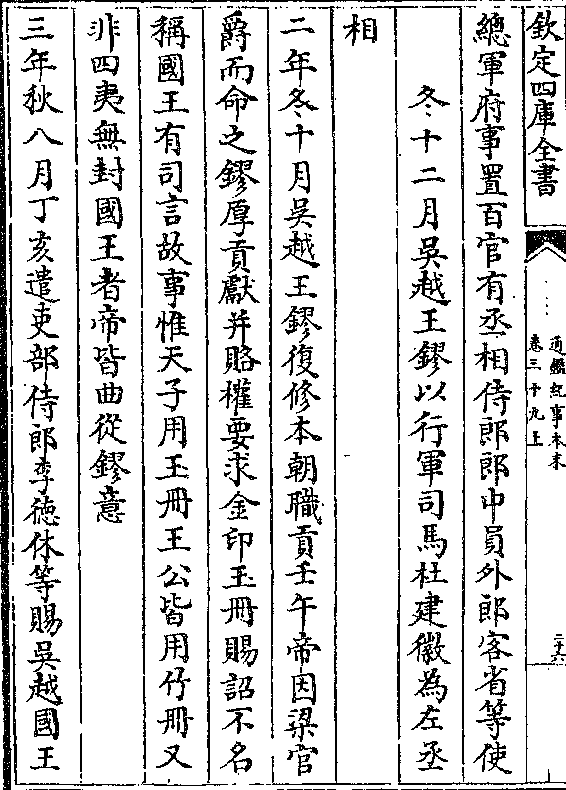 欽定四庫全書
通鑑紀事本末
卷三十九上
二十六
總軍府事置百官有丞相侍郎郎中員外郎客省等使
冬十二月吳越王鏐以行軍司馬杜建徽為左丞
相
二年冬十月吳越王鏐復修本朝職貢壬午帝因梁官
爵而命之鏐厚貢獻并賂權要求金印玉冊賜詔不名
稱國王有司言故事惟天子用玉冊王公皆用竹冊又
非四夷無封國王者帝皆曲從鏐意
三年秋八月丁亥遣吏部侍郎李德休等賜吳越國王